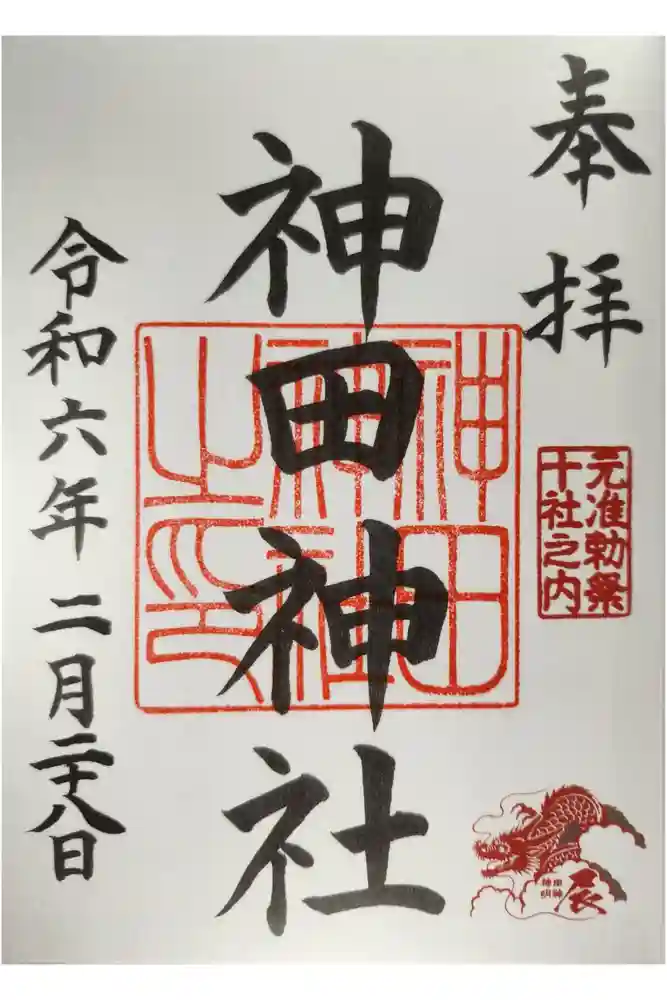 奉拝
元准勅祭
十社之内
神田神社
神田
神社
之印
令和六年二月二十八日
辰
神田
神明